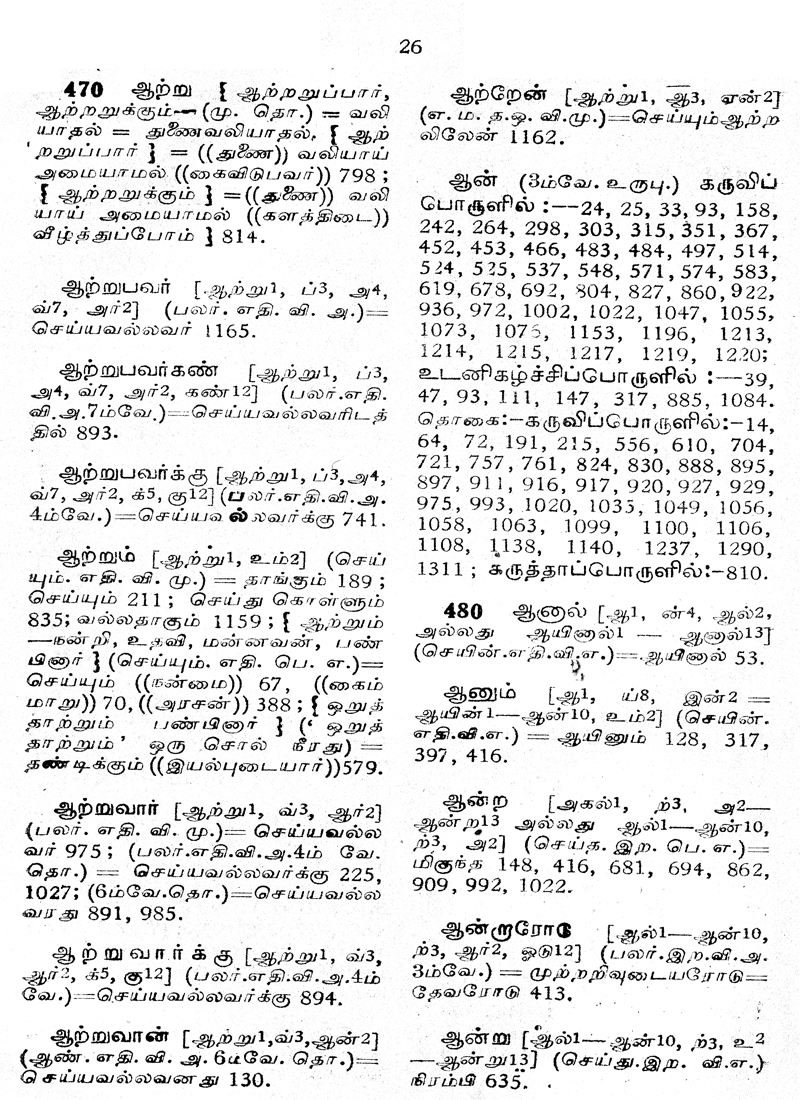 26
470 ஆற்று { ஆற்றறுப்பார்,
ஆற்றறுக்கும்—(மு. தொ.) = வலி
யாதல் = துணைவலியாதல். { ஆற்
றறுப்பார் } = ((துணை)) வலியாய்
அமையாமல் ((கைவிடுபவர்)) 798 ;
{ ஆற்றறுக்கும் } =((துணை)) வலி
யாய் அமையாமல் ((களத்திடை))
வீழ்த்துப்போம் } 814.
ஆற்றுபவர் [ஆற்று1, ப்3, அ4,
வ்7, அர்2] (பலர். எதி. வி. அ.)=
செய்யவல்லவர் 1165.
ஆற்றுபவர்கண் [ஆற்று1, ப்3,
அ4, வ்7, அர்2, கண்12] (பலர்.எதி.
வி.அ.7ம்வே.)=செய்யவல்லவரிடத்
தில் 893.
ஆற்றுபவர்க்கு [ஆற்று1, ப்3,அ4,
வ்7, அர்2, க்5, கு12] (பலர்.எதி.வி.அ.
4ம்வே.)=செய்யவல்லவர்க்கு 741.
ஆற்றும் [ஆற்று1, உம்2] (செய்
யும். எதி. வி. மு.) = தாங்கும் 189 ;
செய்யும் 211 ; செய்து கொள்ளும்
835; வல்லதாகும் 1159 ; { ஆற்றும்
—நன்றி, உதவி, மன்னவன், பண்
பினார் } (செய்யும். எதி. பெ. எ.)=
செய்யும் ((நன்மை)) 67, ((கைம்
மாறு)) 70, ((அரசன்)) 388 ; { ஒறுத்
தாற்றும் பண்பினார் } (‘ ஒறுத்
தாற்றும்’ ஒரு சொல் நீரது) =
தண்டிக்கும் ((இயல்புடையார்))579.
ஆற்றுவார் [ஆற்று1, வ்3, ஆர்2]
(பலர். எதி. வி. மு.)= செய்யவல்ல
வர் 975 ; (பலர்.எதி.வி.அ.4ம் வே.
தொ.) = செய்யவல்லவர்க்கு 225,
1027; (6ம்வே.தொ.)=செய்யவல்ல
வரது 891, 985.
ஆற்றுவார்க்கு [ஆற்று1, வ்3,
ஆர்2, க்5, கு12] (பலர்.எதி.வி.அ.4ம்
வே.)=செய்யவல்லவர்க்கு 894.
ஆற்றுவான் [ஆற்று1,வ்3,ஆன்2]
(ஆண். எதி. வி. அ. 6ம்வே. தொ.)=
செய்யவல்லவனது 130.
ஆற்றேன் [ஆற்று1, ஆ3, ஏன்2]
(எ. ம. த.ஒ. வி.மு.)=செய்யும்ஆற்ற
லிலேன் 1162.
ஆன் (3ம்வே. உருபு.) கருவிப்
பொருளில் :—24, 25, 33, 93, 158,
242, 264, 298, 303, 315, 351, 367,
452, 453, 466, 483, 484, 497, 514,
524, 525, 537, 548, 571, 574, 583,
619, 678, 692, 804, 827, 860, 922,
936, 972, 1002, 1022, 1047, 1055,
1073, 1075, 1153, 1196, 1213,
1214, 1215, 1217, 1219, 1220;
உடனிகழ்ச்சிப்பொருளில் :—39,
47, 93, 111, 147, 317, 885, 1084.
தொகை:–கருவிப்பொருளில்:–14,
64, 72, 191, 215, 556, 610, 704,
721, 757, 761, 824, 830, 888, 895,
897, 911, 916, 917, 920, 927, 929,
975, 993, 1020, 1035, 1049, 1056,
1058, 1063, 1099, 1100, 1106,
1108, 1138, 1140, 1237, 1290,
1311 ; கருத்தாப்பொருளில்:–810.
480 ஆனால் [ஆ1, ன்4, ஆல்2,
அல்லது ஆயினால்1 — ஆனால்13]
(செயின்.எதி.வி.எ.)=ஆயினால் 53.
ஆனும் [ஆ1, ய்8, இன்2 =
ஆயின்1—ஆன்10, உம்2] (செயின்.
எதி.வி.எ.) = ஆயினும் 128, 317,
397, 416.
ஆன்ற [அகல்1, ற்3, அ2—
ஆன்ற13 அல்லது ஆல்1—ஆன்10,
ற்3, அ2] (செய்த. இற. பெ. எ.)=
மிகுந்த 148, 416, 681, 694, 862,
909, 992, 1022.
ஆன்றாரோடு [ஆல்1—ஆன்10,
ற்3, ஆர்2, ஓடு12] (பலர்.இற.வி.அ.
3ம்வே.) = முற்றறிவுடையரோடு=
தேவரோடு 413.
ஆன்று [ஆல்1—ஆன்10, ற்3, உ2
—ஆன்று13] (செய்து.இற. வி.எ.)
நிரம்பி 635.